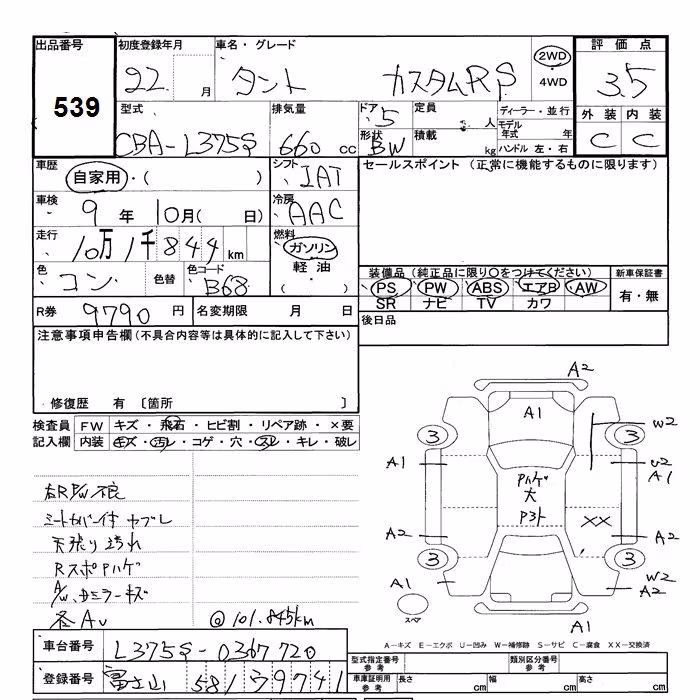 出品番号 初度登録年月 車名・グレード 評価点
539 22 月 タント カスタムRS 2WD ・4WD 3.5
型式 排気量 ドア 定員 ディーラー・並行 外装 内装
CBA-L375S 660 cc 5 人 モデル年式 年 C C
形状 BW 積載 kg ハンドル 左・右
車歴 自家用・( ) シフト IAT セールスポイント (正常に機能するものに限ります)
車検 9 年 10 月( 日) 冷房 AAC
走行 10万1千844 km 燃料 ガソリン
軽油 ・( )
色 コン 色替 色コード B68 装備品(純正品に限り○をつけてください) 新車保証書
PS PW ABS エアB AW 有・無
SR ナビ TV カワ
R券 9790 円 名変期限 月 日 後日品
注意事項申告欄(不具合内容等は具体的に記入して下さい)
・修復歴 有 〔箇所 〕
検査員 FW キズ・飛石・ヒビ割・リペア跡・×要
記入欄 内装 キズ・汚レ・コゲ・穴・スレ・キレ・破レ
A2
A1
3 3 W2
A1 U2
A1
Pハゲ
大
P3ト XX
A2 A2
3 3
A1 W2
A2
スペア A1
右RP/W不良
シートカバー付 ヤブレ
天張り汚れ
RスポPハゲ
A/W、ドミラーキズ
各AU @101.845km
A-キズ E-エクボ U-凹み W-補修跡 S-サビ C-腐食 XX-交換済
車台番号 L375S-0367720 型式指定番号 参考 類別区分番号 参考
登録番号 富士山 581 ラ 9741 車庫証明用 参考 長さ cm 幅 cm 高さ cm